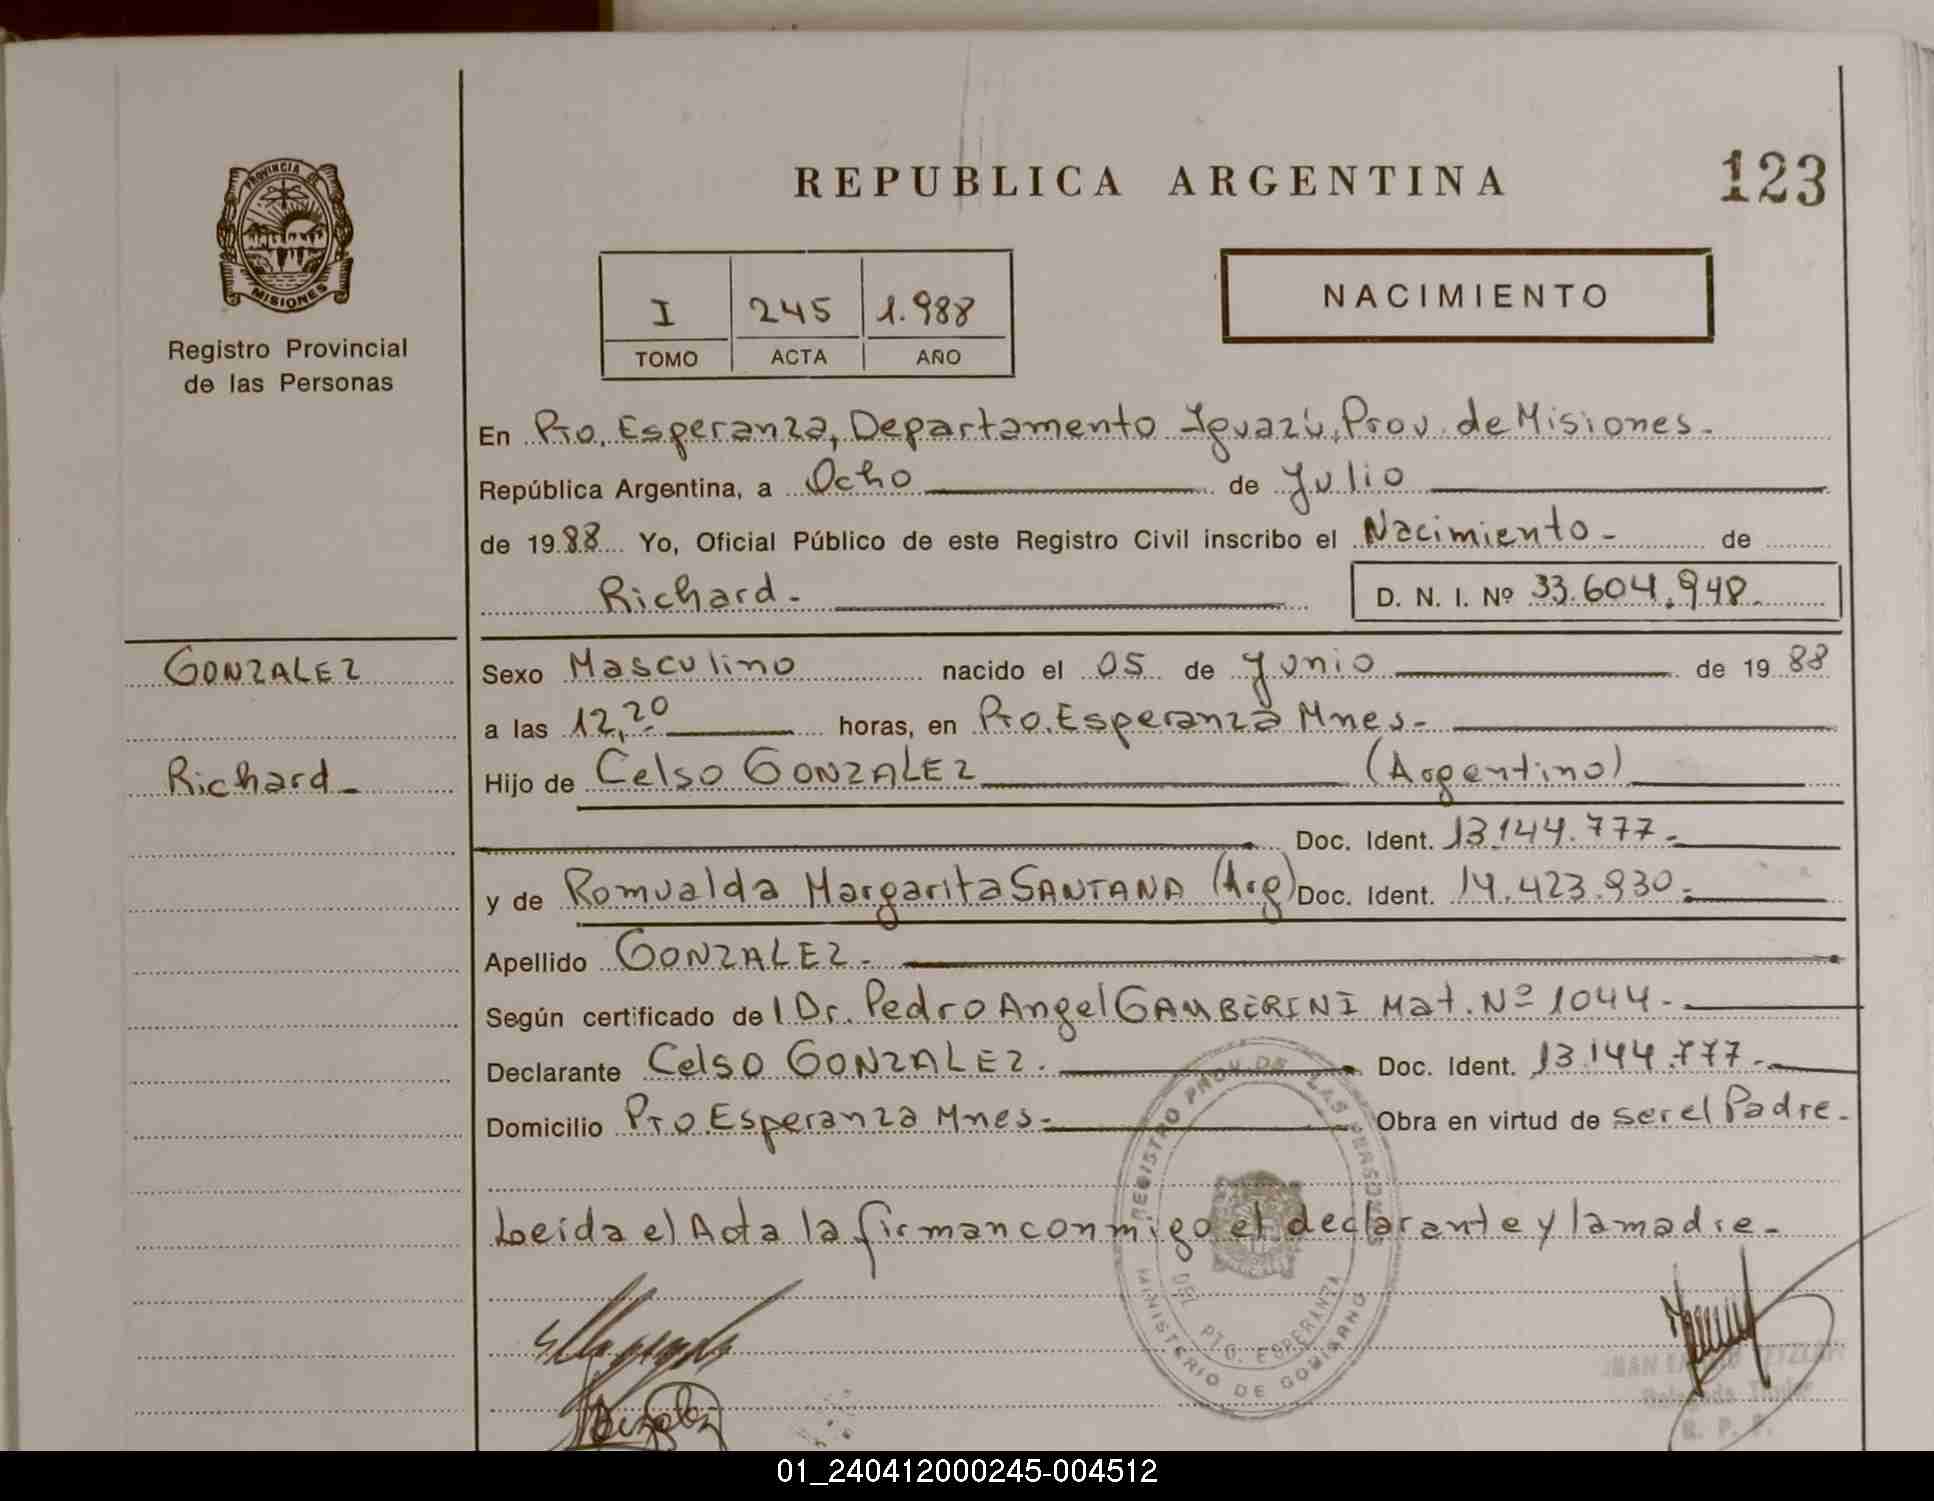 PROVINCIA DE
MISIONES
Registro Provincial
de las Personas
REPUBLICA ARGENTINA
123
I 245 1.988
TOMO ACTA AÑO
NACIMIENTO
En Pto. Esperanza, Departamento Iguazú, Prov. de Misiones.
República Argentina, a Ocho de Julio
de 1988 Yo, Oficial Público de este Registro Civil inscribo el Nacimiento - de
Richard - D. N. I. Nº 33.604.948.
GONZALEZ
Richard -
Sexo Masculino nacido el 05 de Junio de 1988
a las 12,20 horas, en Pto. Esperanza Mnes -
Hijo de Celso GONZALEZ (Argentino)
Doc. Ident. 13.144.777.-
y de Romualda Margarita SANTANA (Arg) Doc. Ident. 14.423.930.-
Apellido GONZALEZ.-
Según certificado del Dr. Pedro Angel GAMBERINI Mat. Nº 1044.-
Declarante Celso GONZALEZ. Doc. Ident. 13.144.777.-
Domicilio Pto Esperanza Mnes.- Obra en virtud de ser el Padre.-
Leida el Acta la firman conmigo el declarante y la madre.-
REGISTRO PROV. DE LAS PERSONAS
DEL PTO. ESPERANZA
MINISTERIO DE GOBIERNO
Titular
R. P. P.
01_240412000245-004512